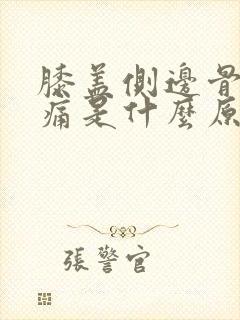 膝蓋側邊骨
痛是什麼原
張警官